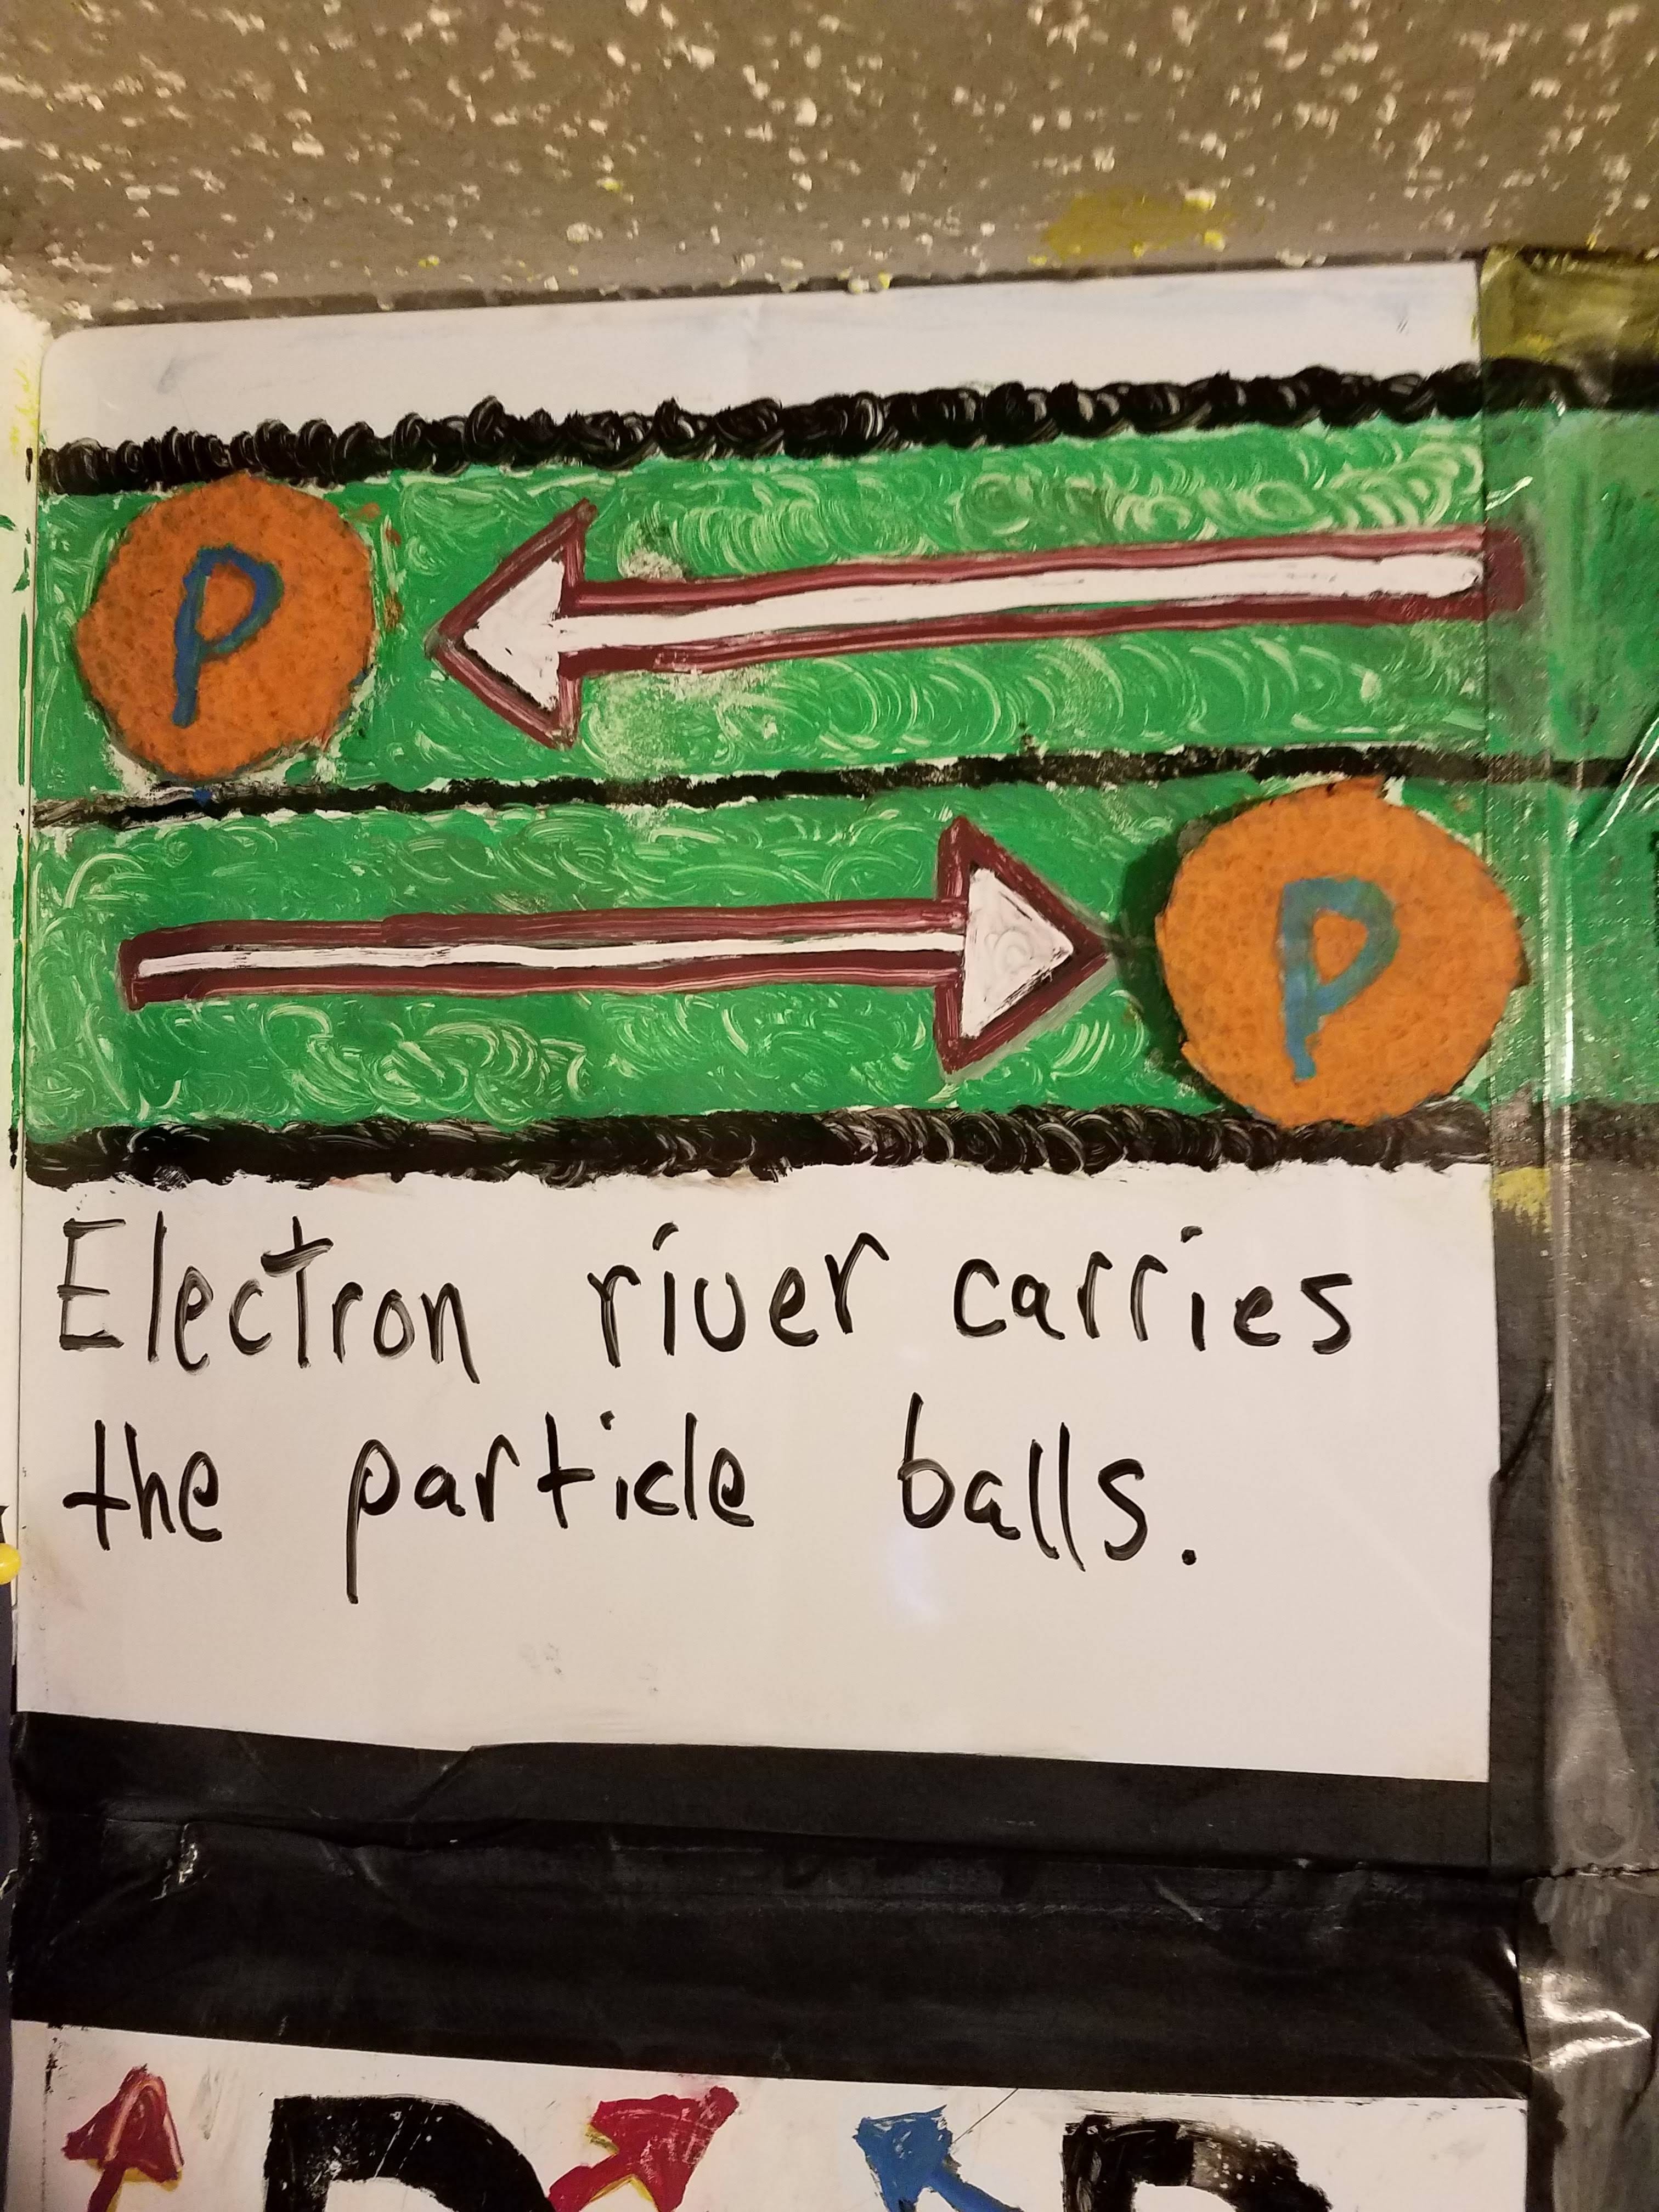 P
P
Electron river carries
the particle balls.